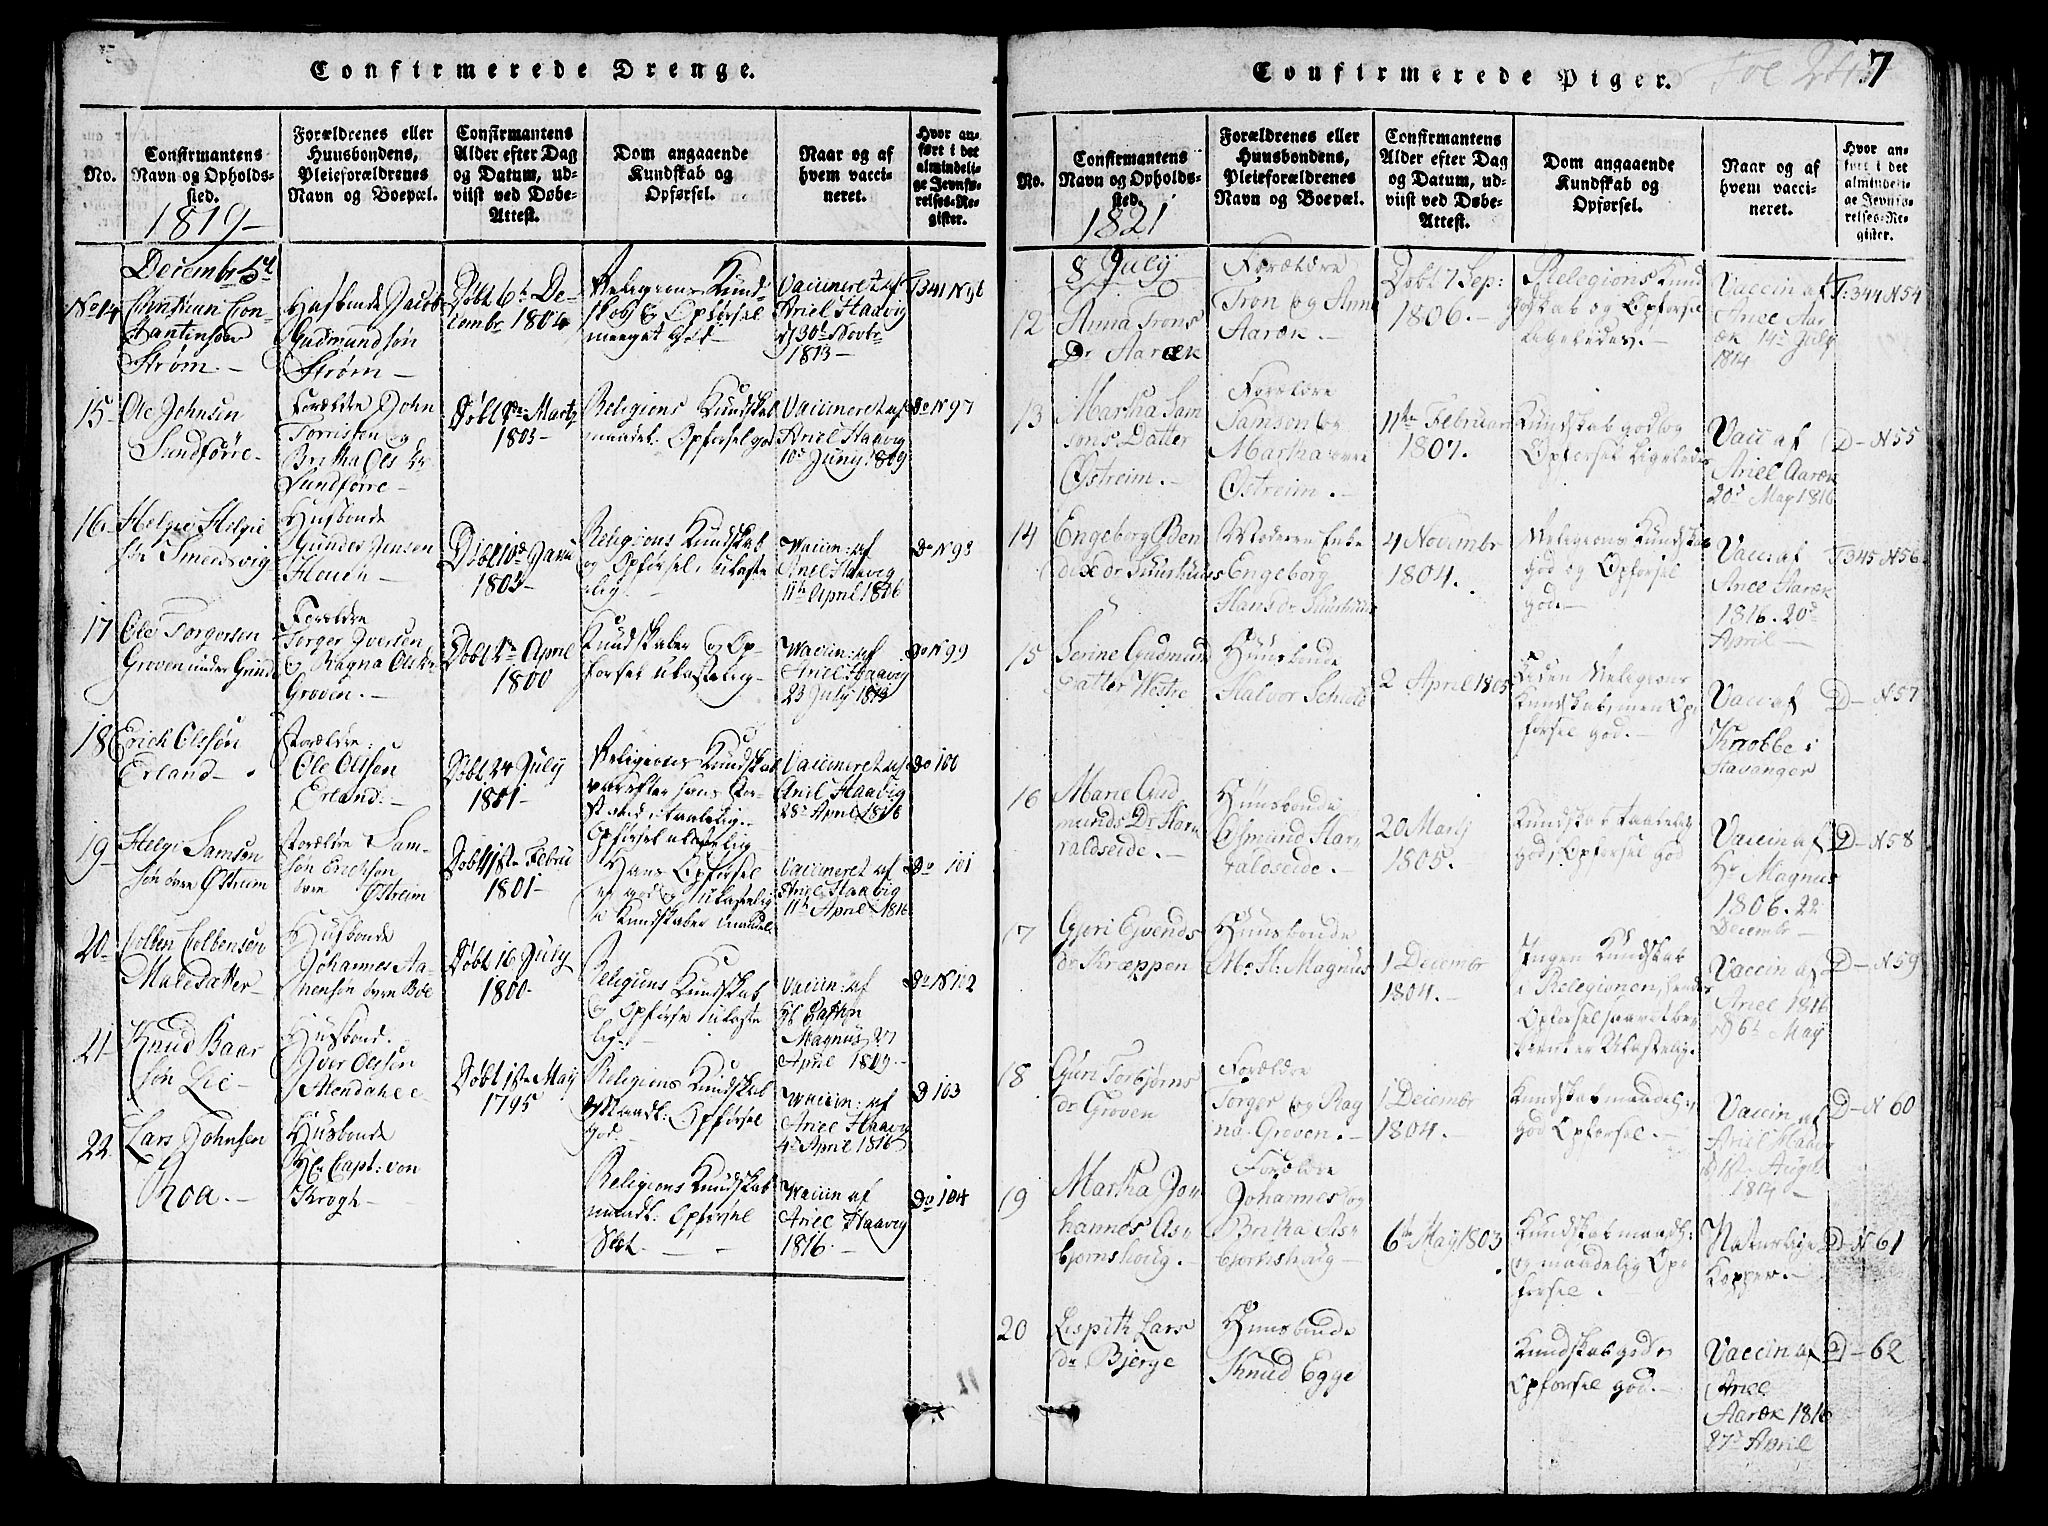 Confirmerede Drenge.
No.
Confirmantens
Navn og Opholds-
sted.
1819-
Forældrenes eller
Huusbondens,
Pleieforældrenes
Navn og Boepæl.
Confirmantens
Alder efter Dag
og Datum, ud-
viist ved Døbe-
Attest.
Dom angaaende
Kundskab og
Opførsel.
Naar og af
hvem vacci-
neret.
Hvor an-
ført i det
almindeli-
ge Jevnfø-
relses-Re-
gister.
Decembr 5te
No 14
Christian Con-
stantinsøn
Strøm.-
Husbonde Jacob
Gudmundsøn
Strøm-
Døbt 6te De-
cembr. 1804
Religions Kund-
skab & Opførsel
meeget God-
Vaccineret af
Ariel Haavig
d 30te Novbr
1813-
T341 N96
15-
Ole Johnsen
Sundførre-
Forældre John
Tørrissen og
Britha Ols dr
Sundførre-
Døbt Martz
1803-
Religions Kundskab
maadel. Opførsel god
Vaccineret af
Ariel Haavig
10de Juny 1809
Do N97
16-
Helgie Helgie
Smedsvig
Husbonde
Gunder Jensen
Houen-
Januar
1803-
Religions Kundskab
og Opførsel ulaste
lig-
Vaccin: af
Ariel Haavig
11te April 1816
Do N98
17
Ole Torgersen
Groven under Grinde
Forældre
Torger Iversen
og Ragna Olsdr
Groven.-
Døbt April
1800
Kundskaber og Op-
førsel ulastelig-
Vaccin: af
Ariel Haavig
23 July 1813
Do N99
18
Erich Olssøn
Erland-
Forældre:
Ole Olssøn
Erland.-
Døbt 24 July
1801-
Religions Kundskab
var efter hans For-
stand, taalelig.
Opførsel ulastelig-
Vaccineret af
Ariel Haavig
28de April 1816
Do 100
19-
Helgi Samsøn
søn øvre Østreim
Forældre Sam-
søn Erichsøn
øvre Østreim
Døbt 18te Febru
1801-
Hans Opførsel
er god og ulastelig
Kundskaber maadel.
Vaccineret af
Ariel Haavig
11te April 1816
Do 101
20-
Colben Colbensøn
Malesætter-
Husbonde
Johannes Aa-
mensøn øvre Bøe
Døbt 16 July
1800-
Religions Kundskab
og Opførsel ulaste
lig.-
Vaccin: af
Magnus 27
April 1809-
Do N102
21-
Knud Baar
søn Lie-
Husbond.
Iver Olssøn
Alendahl
Døbt 18te May
1795
Religions Kundskab
Maadl: Opførsel
God-
Vaccin: af
Ariel Haavig
4de April 1816
D 103
22
Lars Johnsen
Roa.-
Husbonde
Hr Capt: von
Krogh-
Religions Kundskab
maadl: Opførsel
Slet.-
Vaccin af
Ariel Haavig
1816.-
Do 104
Confirmerede Piger.
7
No.
Confirmantens
Navn og Opholds-
sted.
1821
Forældrenes eller
Huusbondens,
Pleieforældrenes
Navn og Boepæl.
Confirmantens
Alder efter Dag
og Datum, ud-
viist ved Døbe-
Attest.
Dom angaaende
Kundskab og
Opførsel.
Naar og af
hvem vacci-
neret.
Hvor an-
ført i det
almindeli-
ge Jevnfø-
relses-Re-
gister.
8 July
12
Anna Trons
Dr Aaræk
Forældre
Tron og Anna
Aaræk.-
Døbt 7 Sep:
1806.-
Religions Kund
skab og Opførsel
ligeledes.-
Vaccin af
Ariel Aar
æk 14de July
1814
T:344 N54
13
Martha Sam
sons Datter
Østreim.-
Forældre
Samson og
Martha øvre
Østreim.-
11te Februar
1807.
Kundskab god og
Opførsel ligeledes
Vacc af
Ariel Aaræk
20de May 1816
D- N55
14
Engeborg Øen
dre dr Suurhuus
Moderen Enke
Engeborg
Hans dr Suurhuus
4 Novembr
1804.
Religions Kundskab
god og Opførsel
god.-
Vacc af
Ariel Aaræk
1816. 20de
April-
T345 N56
15
Serine Gudmund
Datter Westre
Huusbonde
Halvor Schield
2 April 1805
Liden Religions
Kundskab, men Op-
førsel god.-
Vacc af
Krobbe i
Stavanger
D- N57
16
Marie Gud
munds Dr Har
raldseide.-
Huusbonde
Osmund Har-
raldseide.-
20 Martz
1805.-
Kundskab taalelig
god, Opførsel God
Vaccin af
Hr Magnus
1806. 22
Decembr-
D- N58
17
Gjøri Ejvends
dr Kræppen
Huusbonde
Mr H: Magnus
1 Decembr
1804.-
Ingen Kundskab
i Religionen, hendes
Opførsel saavidt be-
kient er Ulastelig.
Vaccin af
Ariel 1816
d 6te May
D- N59
18
Guri Torbjørns
dr Groven
Forældre
Torger og Rag
na Groven.-
1 Decembr
1804.-
Kundskab maadel:
god Opførsel.-
Vaccin af
Ariel Haavig
d 18te Augst
1814-
D- N 60
19
Martha Jo-
hannes As-
bjørnshoug.-
Forældre
Johannes og
Britha As-
bjørnshaug-
6te May 1803
Kundskab maadl:
og maadelig Op-
førsel.-
Naturlige
Kopper.-
D- N 61
20
Lispith Lars
dr Bjerge
Huusbonde
Knud Egge
Kundskab god &
Opførsel god.-
Vaccin af
Ariel
Aaræk 1816
27de April
D- 62